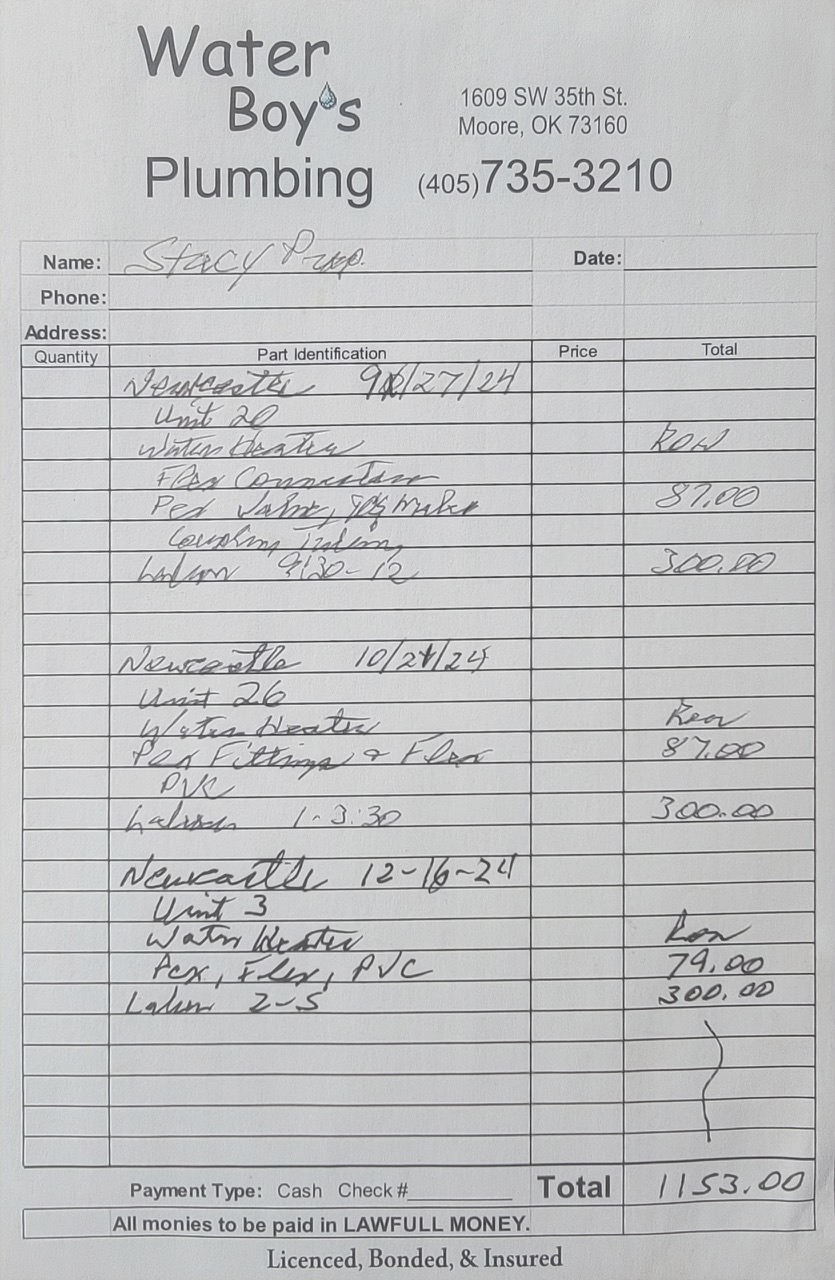 Water
Boy's
Plumbing
1609 SW 35th St.
Moore, OK 73160
(405)735-3210
Name: Stacy Prop. Date:
Phone:
Address:
Quantity Part Identification Price Total
Newcastle 9/27/24
Unit 20
Water Heater Ron
Flex Connectors
Pex Valve, 87.00
Coupling Tubing
Labor 9:30-12 300.00
Newcastle 10/21/24
Unit 26
Water Heater Ron
Pex Fittings & Flex 87.00
PVC
Labor 1-3:30 300.00
Newcastle 12-16-24
Unit 3
Water Heater Ron
Pex, Flex, PVC 79.00
Labor 2-5 300.00
Payment Type: Cash Check #________ Total 1153.00
All monies to be paid in LAWFULL MONEY.
Licenced, Bonded, & Insured